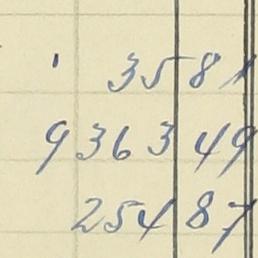 3581
936349
25487